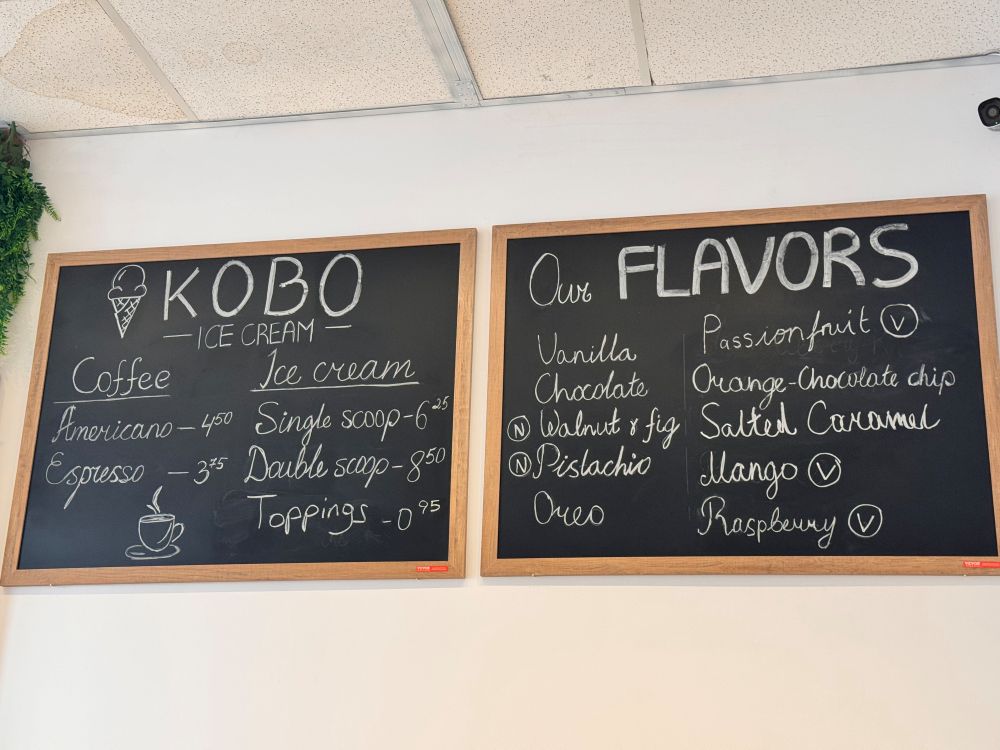 KOBO
— ICE CREAM —
Coffee
Americano – 4.50
Espresso – 3.75
Ice cream
Single scoop – 6.25
Double scoop – 8.50
Toppings – 0.95
Our FLAVORS
Vanilla
Chocolate
N Walnut & fig
N Pistachio
Oreo
Passionfruit V
Orange-Chocolate chip
Salted Caramel
Mango V
Raspberry V
VEVOR
VEVOR